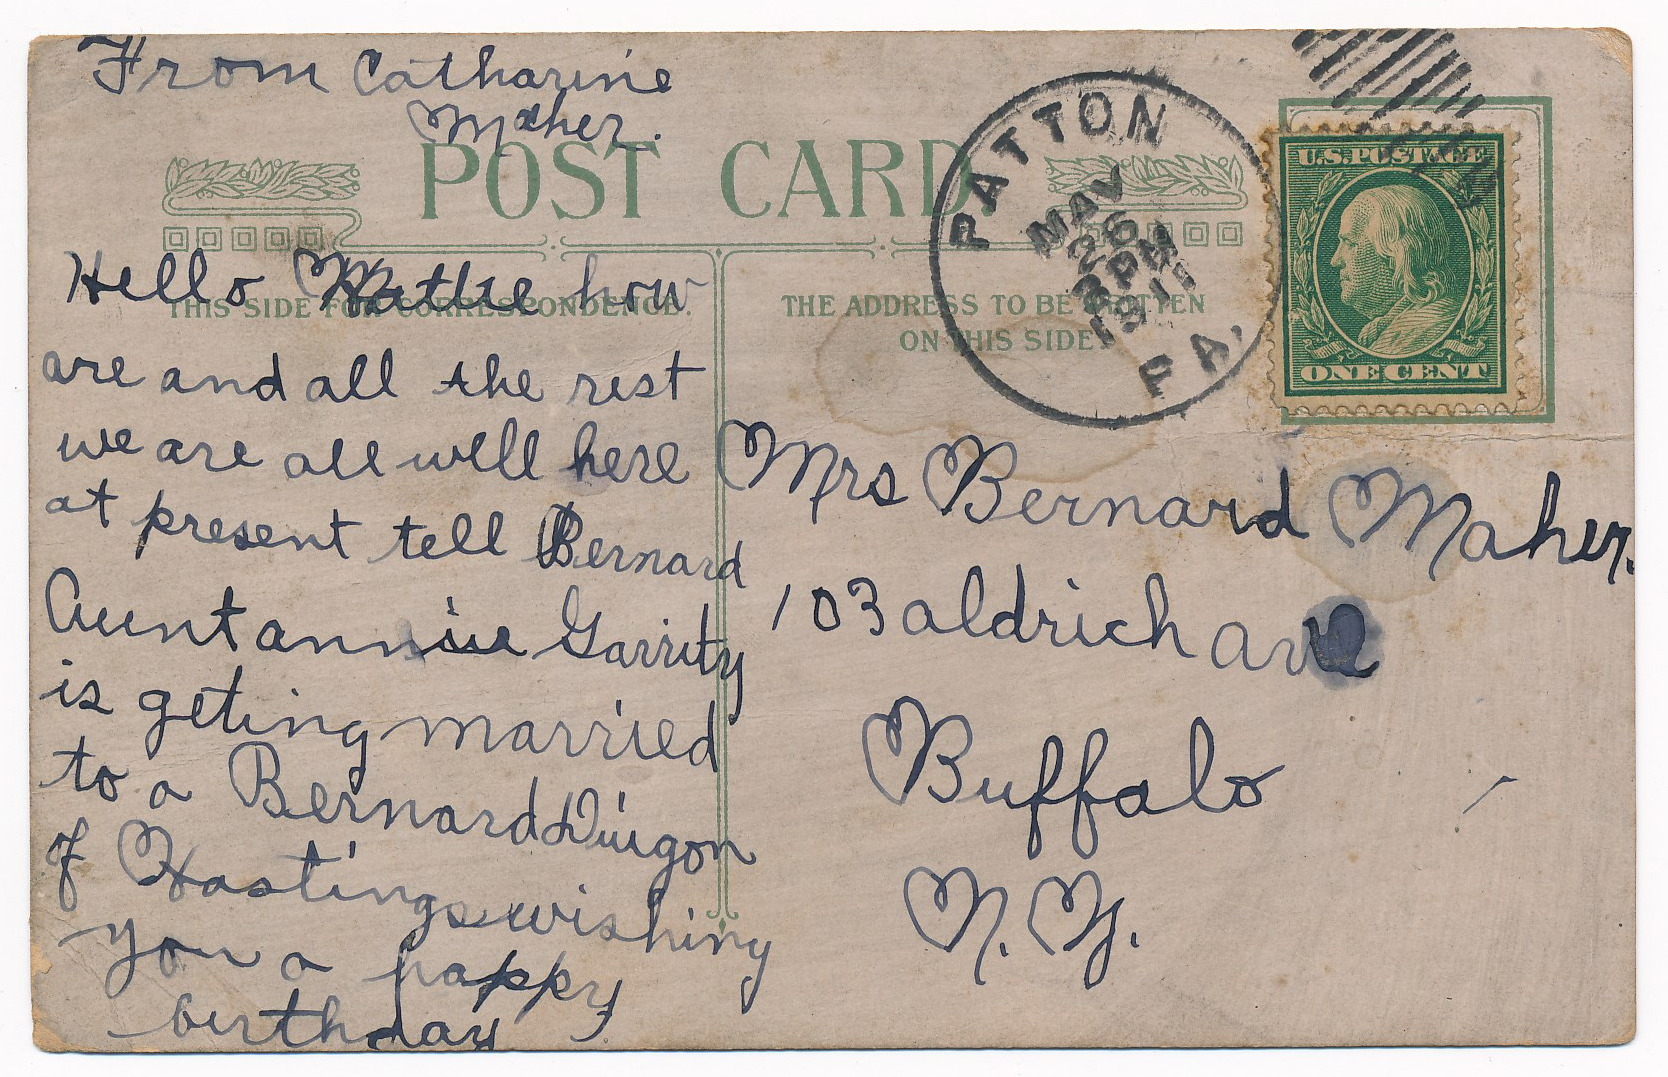 From Catharine
Maher.
POST CARD.
PATTON
MAY
26
3 PM
1911
PA.
U.S. POSTAGE
ONE CENT
THIS SIDE FOR CORRESPONDENCE.
THE ADDRESS TO BE WRITTEN
ON THIS SIDE.
Hello Mattie how
are and all the rest
we are all well here
at present tell Bernard
Aunt annie Garrity
is geting married
to a Bernard
of Hastings wishing
you a happy
birthday
Mrs Bernard Maher.
103 aldrich ave
Buffalo
N.Y.